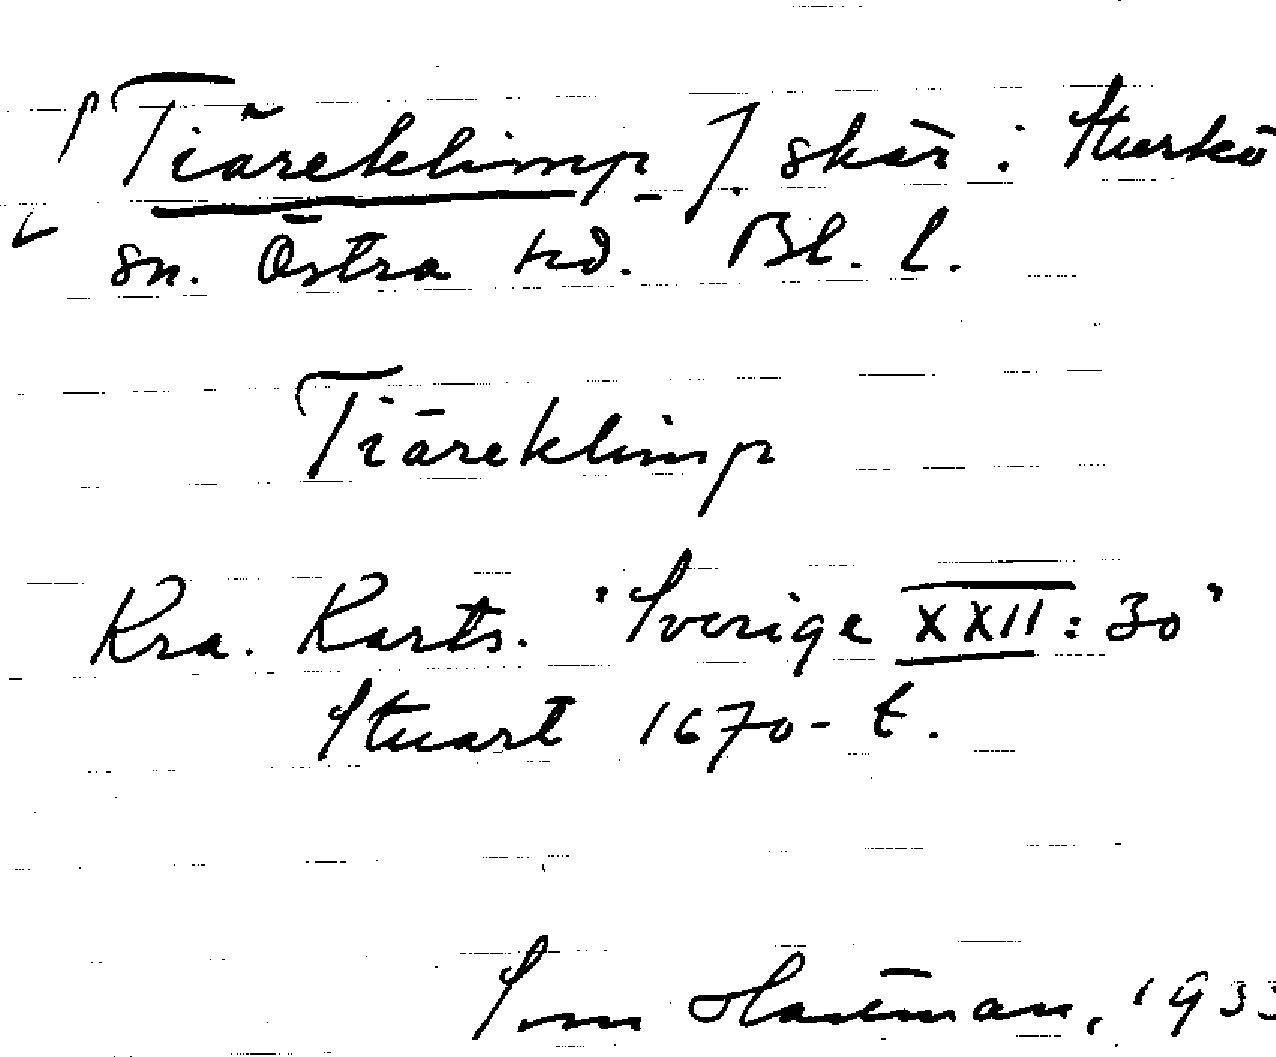 [Tiäreklimp]. skär i Sturkö
sn. Östra hd. Bl. l.
Tiäreklimp
Kra. Karts. "Sverige XXII: 30"
Stuart 1670-t.
1933